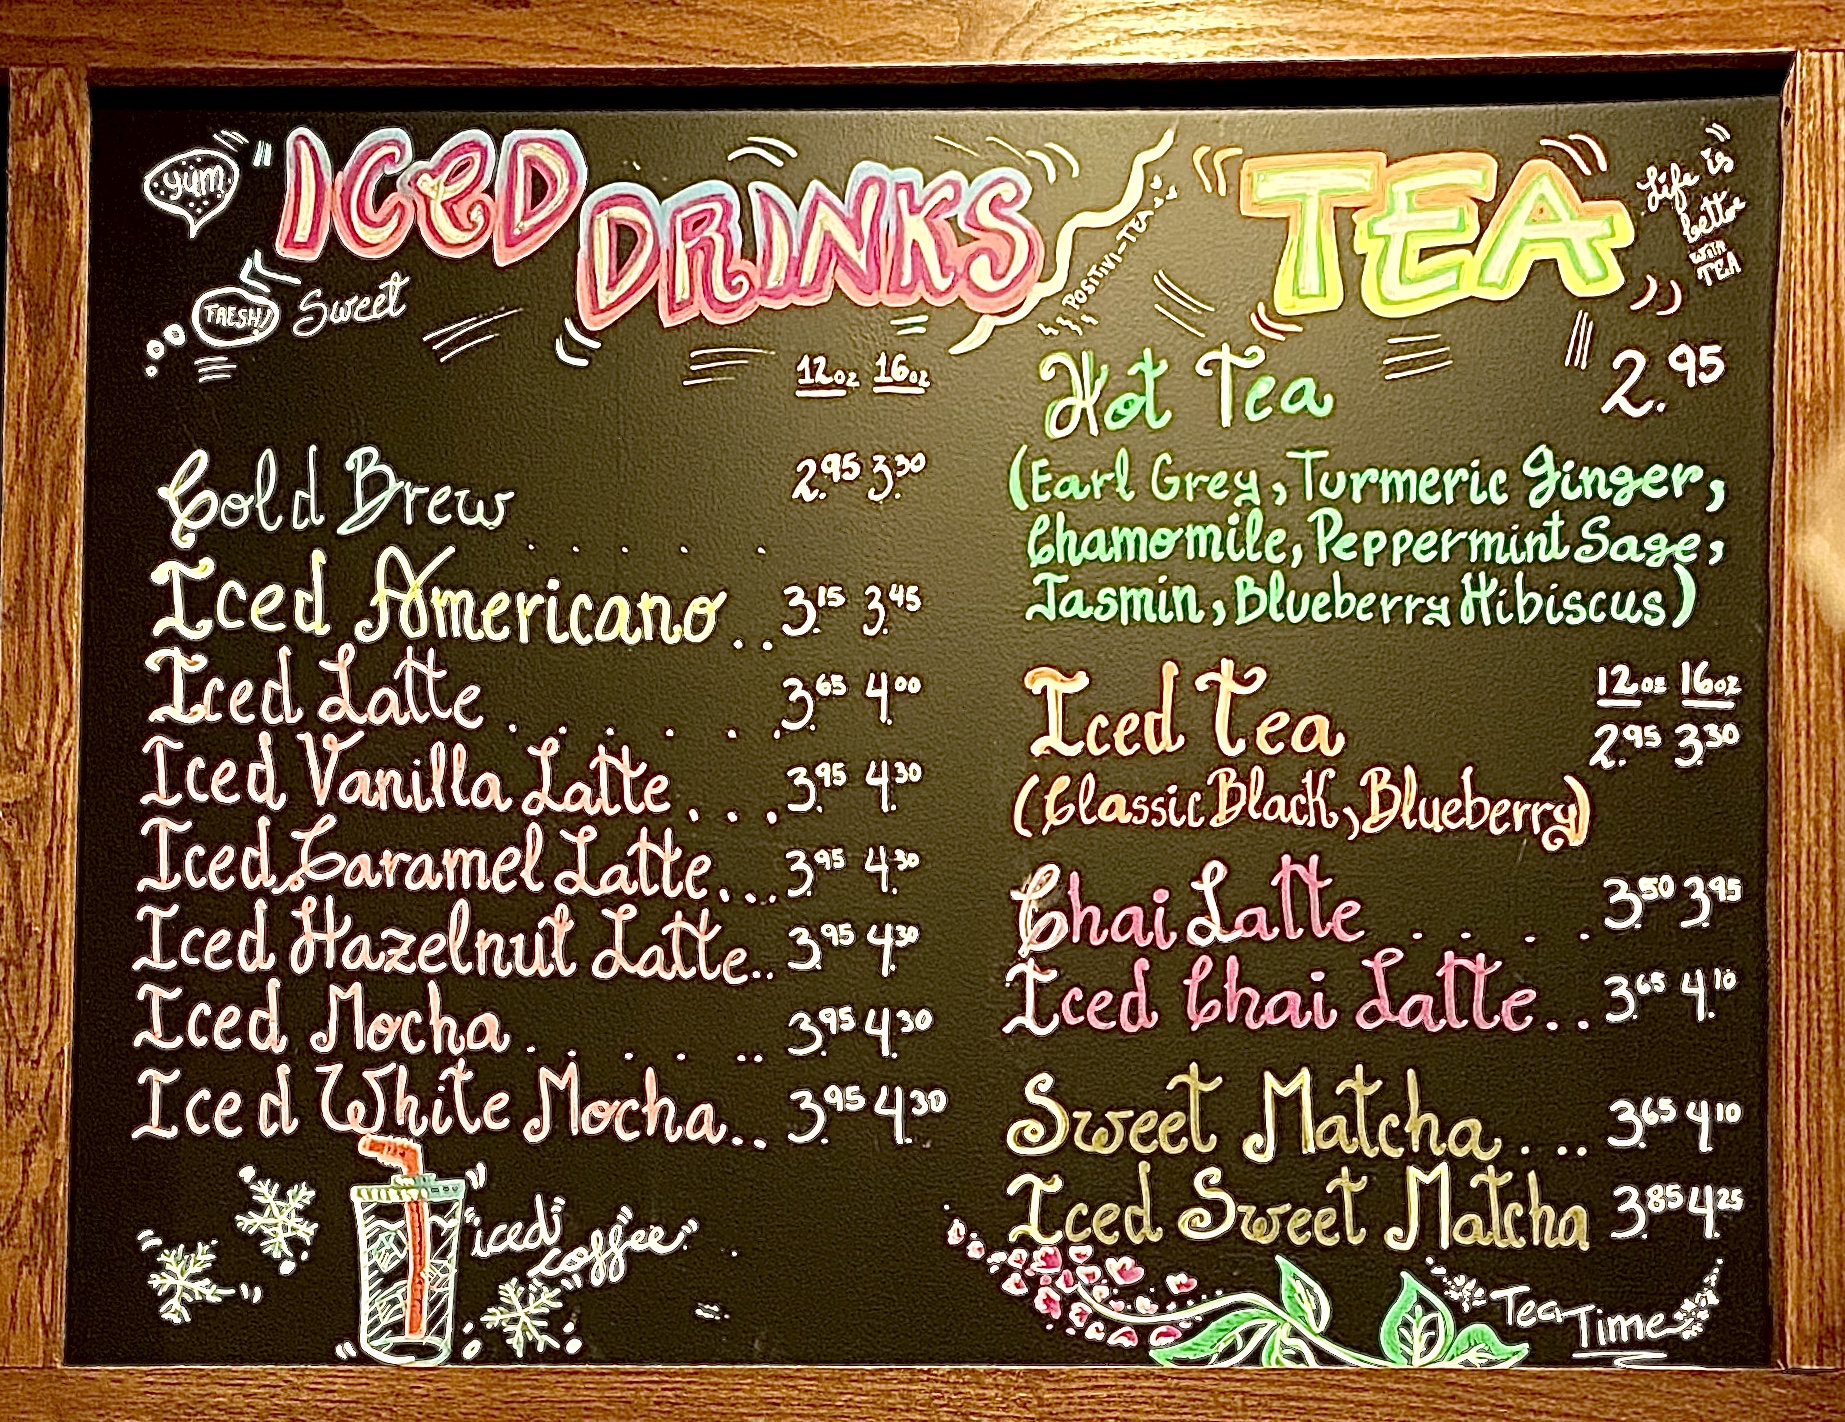 yum
ICED DRINKS
FRESH!
Sweet
12oz 16oz
Cold Brew . . . . . 2.95 3.30
Iced Americano . . 3.15 3.45
Iced Latte . . . . . . 3.65 4.00
Iced Vanilla Latte . . . 3.95 4.30
Iced Caramel Latte . . . 3.95 4.30
Iced Hazelnut Latte . . 3.95 4.30
Iced Mocha . . . . . . 3.95 4.30
Iced White Mocha . . 3.95 4.30
"iced coffee"
POSITIVI-TEA
TEA
Life is
better
with
TEA
Hot Tea 2.95
(Earl Grey, Turmeric Ginger,
Chamomile, Peppermint Sage,
Jasmin, Blueberry Hibiscus)
12oz 16oz
Iced Tea 2.95 3.30
(Classic Black, Blueberry)
Chai Latte . . . . 3.50 3.95
Iced Chai Latte . . 3.65 4.10
Sweet Matcha . . . 3.65 4.10
Iced Sweet Matcha 3.85 4.25
Tea Time